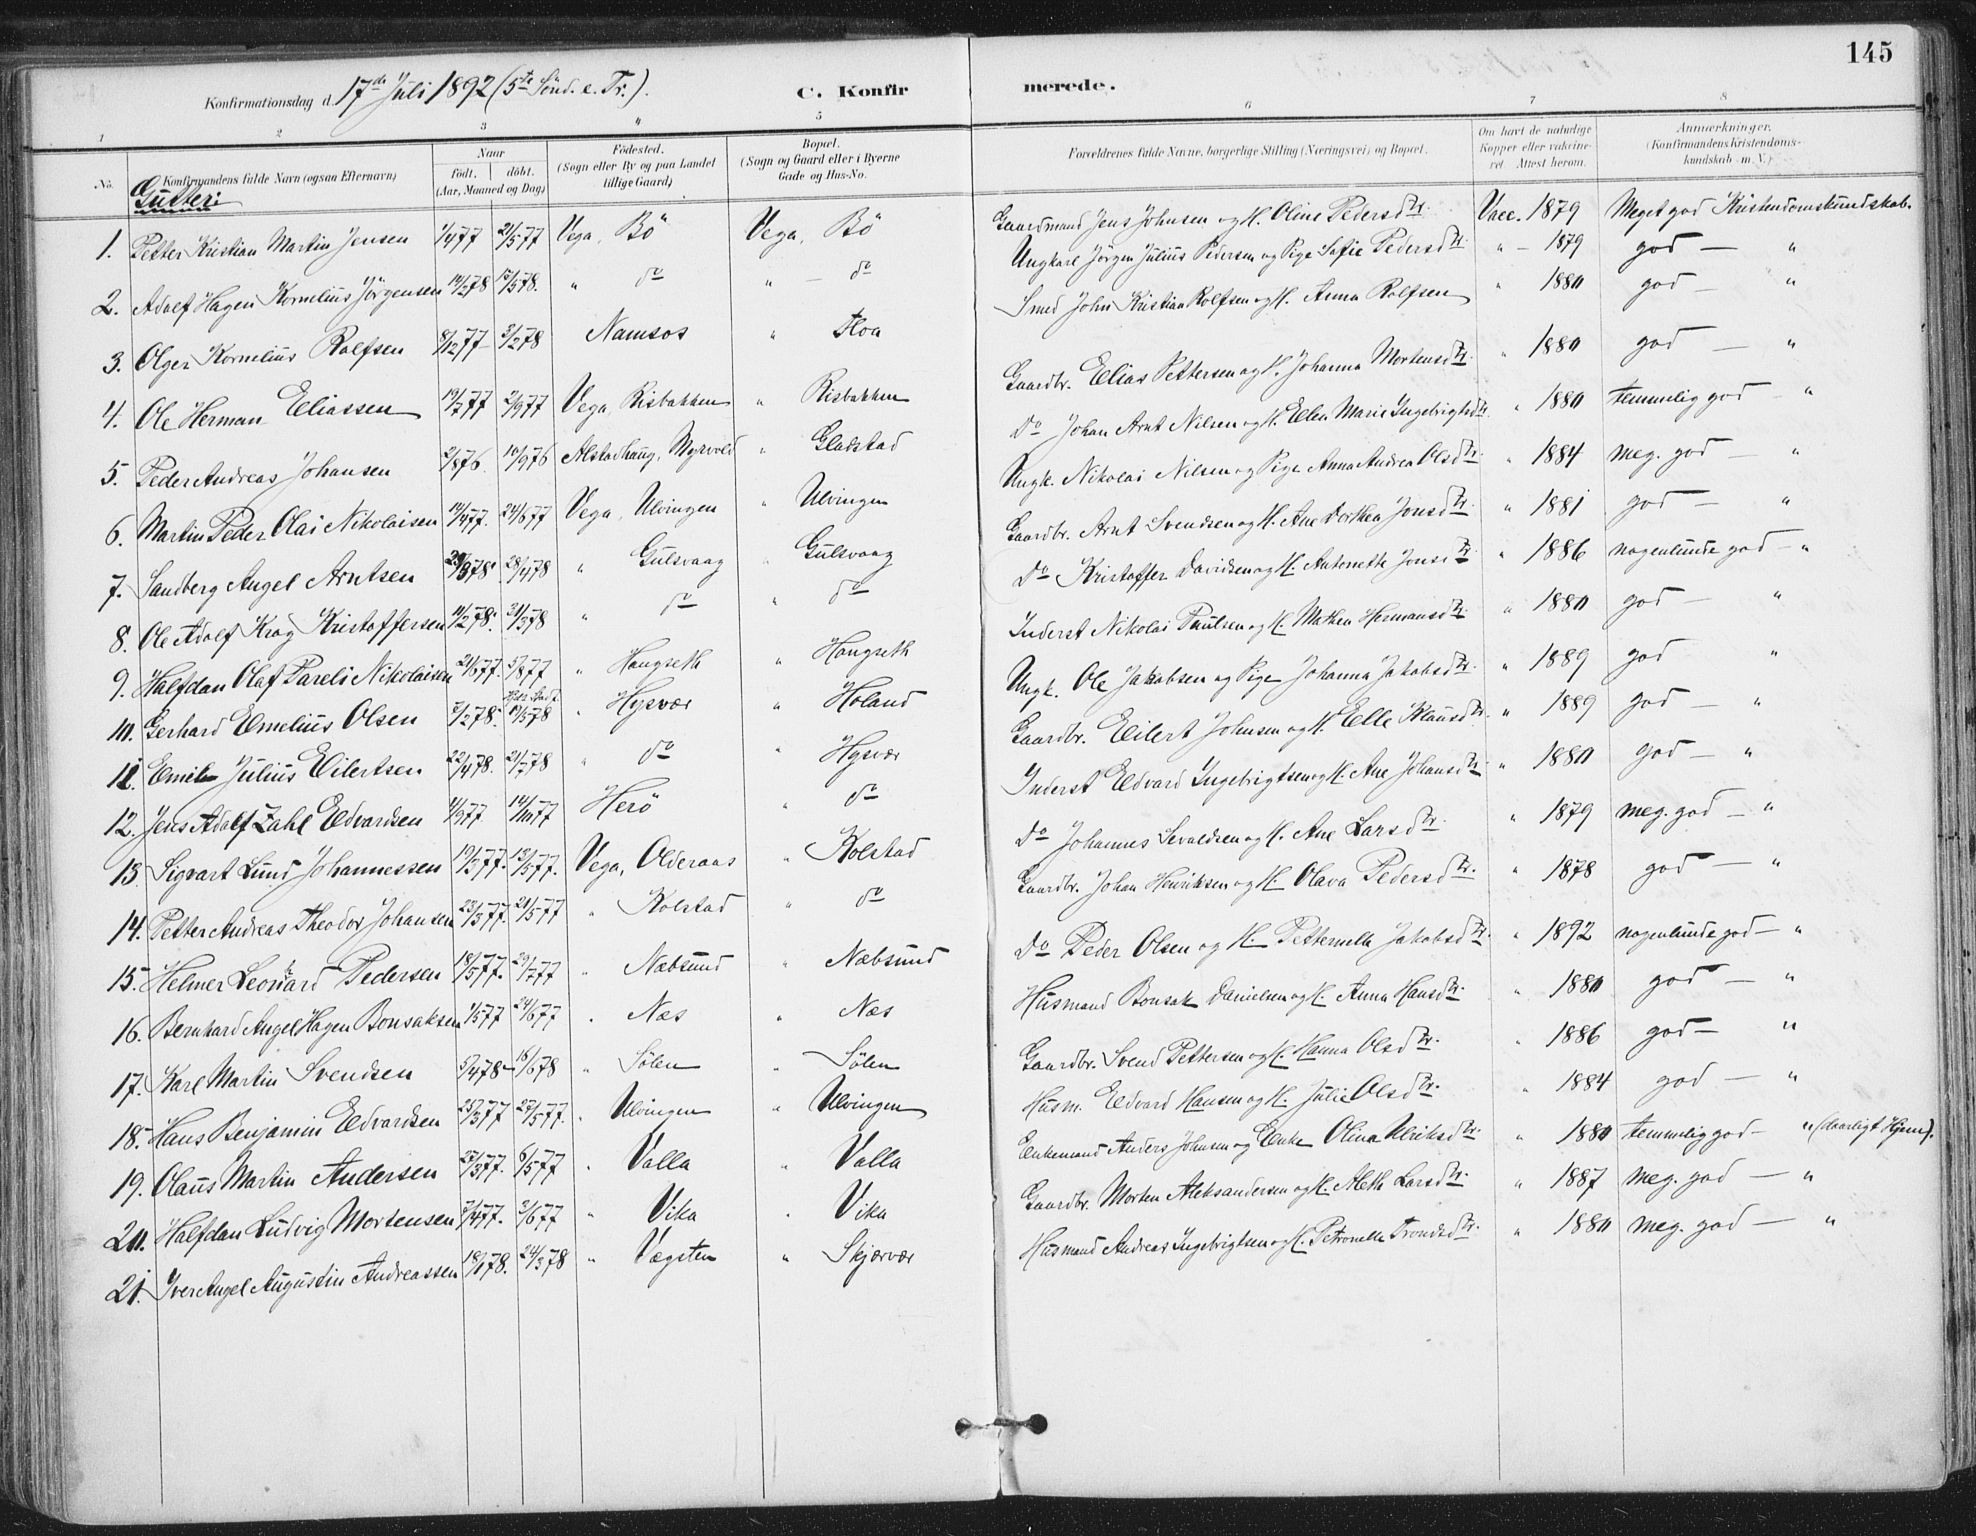 145
Konfirmationsdag d. 17de Juli 1892 (5te Sønd. e. Tr.). C. Konfirmerede.
1 2 3 " 5 6 7 8
No. Konfirmandens fulde Navn (ogsaa Efternavn) Naar født. døbt. (Aar, Maaned og Dag) Fødested. (Sogn eller By og paa Landet tillige Gaard) Bopæl. (Sogn og Gaard eller i Byerne Gade og Hus-No. Forældrenes fulde Navne, borgerlige Stilling (Næringsvei) og Bopæl. Om havt de naturlige Kopper eller vaccineret. Attest herom. Anmærkninger. (Konfirmandens Kristendomskundskab m. V.)
Gutter:
1. Petter Kristian Martin Jensen 1/4 77 21/5 77 Vega, Bö Vega, Bö Gaardmand Jens Johnsen og H. Oline Pedersdtr. Vacc. 1879 Meget god Kristendomskundskab.
2. Adolf Hagen Kornelius Jörgensen 14/2 78 12/5 78. " do " — do Ungkarl Jörgen Julius Pedersen og Pige Sofie Pedersdtr. " — 1879 god — "
3. Olger Kornelius Rolfsen 8/12 77 3/2 78 Namsos " Floa Smed John Kristian Rolfsen og H. Anna Rolfsen " 1880 god — "
4. Ole Herman Eliassen 19/7 77 2/9 77 Vega, Risbakken " Risbakken Gaardbr. Elias Pettersen og H. Johanna Mortensdtr. " 1880 god — "
5. Peder Andreas Johansen 2/8 76. 10/9 76 Alstadhaug, Myrvold " Gladstad Do Johan Arnt Nilsen og H. Ellen Marie Ingebrigtsdtr. " 1880 temmelig god — "
6. Martin Peder Olai Nikolaisen 14/4 77. 24/6 77 Vega, Ulvingen " Ulvingen Ungk. Nikolai Nilsen og Pige Anna Andrea Olsdtr. " 1884 meg. god — "
7. Sandberg Angel Arntsen 28/3 78. 28/4 78 " Gulsvaag " Gulsvaag Gaardbr. Arnt Svendsen og H. Ane Dorthea Jonsdtr. " 1881 god — "
8. Ole Adolf Krag Kristoffersen 11/2 78. 31/3 78 " do " do Do Kristoffer Davidsen og H. Antonette Jonsdtr. " 1886 nogenlunde god — "
9. Halfdan Olaf Pareli Nikolaisen 21/6 77. 5/8 77 " Hongseth " Hongseth Inderst Nikolai Paulsen og H. Mathea Hermansdtr. " 1880 god — "
10. Gerhard Emelius Olsen 3/2 78. 19/5 78 " Hysvær " Holand Ungk. Ole Jakobsen og Pige Johanna Jakobsdtr. " 1889 god — "
11. Emil Julius Eilertsen 22/4 78. 21/7 78 " do " Hysvær Gaardbr. Eilert Johnsen og H. Elle Klausdtr. " 1889 god — "
12. Jens Adolf Zahl Edvardsen 11/9 77 14/10 77 Herö " do Inderst Edvard Ingebrigtsen og H. Ane Johansdtr. " 1880 god — "
13. Sigvart Lund Johannessen 19/3 77. 13/5 77. Vega, Olderaas " Kolstad Do Johannes Sevaldsen og H. Ane Larsdtr. " 1879 meg. god — "
14. Petter Andreas Theodor Johansen 23/3 77. 21/5 77 " Kolstad " do Gaardbr. Johan Henriksen og H. Olava Pedersdtr. " 1878 god — "
15. Helmer Leonard Pedersen 18/5 77. 29/7 77 " Næbsund " Næbsund Do Peder Olsen og H. Petternella Jakobsdtr. " 1892 nogenlunde god — "
16. Bernhard Angel Hagen Bonsaksen 1/5 77 24/6 77 " Næs " Næs Husmand Bonsak Danielsen og H. Anna Hansdtr. " 1880 god — "
17. Karl Martin Svendsen 5/4 78 16/6 78 " Sölen " Sölen Gaardbr. Svend Pettersen og H. Hanna Olsdtr. " 1886 god — "
18. Hans Benjamin Edvardsen 25/3 77 27/5 77. " Ulvingen " Ulvingen Husm. Edvard Hansen og H. Julie Olsdtr. " 1884 god — "
19. Olaus Martin Andersen 27/3 77. 6/5 77 " Valla " Valla Enkemand Anders Johnsen og Enke Olina Ulriksdtr. " 1880 temmelig god — " (daarligt Hjem).
20. Halfdan Ludvig Mortensen 7/4 77. 3/6 77 " Vika " Vika Gaardbr. Morten Aleksandersen og H. Aleth Larsdtr. " 1887 meg. god — "
21. Iver Angel Augustin Andreassen 18/1 78. 24/3 78 " Vægsten " Skjærvær Husmand Andreas Ingebrigtsen og H. Petronella Trondsdtr. " 1880 meg. god — "